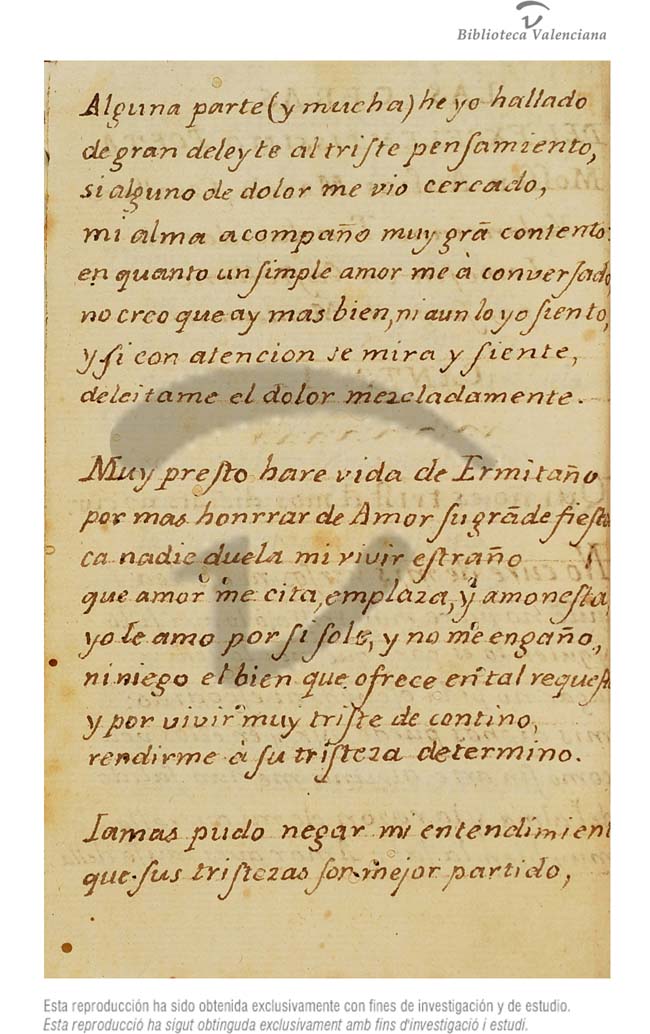 Biblioteca Valenciana
Alguna parte (y mucha) he yo hallado
de gran deleyte al triste pensamiento,
si alguno de dolor me vio cercado,
mi alma acompaño muy grã contento:
en quanto un simple amor me à conversado,
no creo que ay mas bien, ni aun lo yo siento,
y si con atencion se mira y siente,
deleitame el dolor mezcladamente.
Muy presto hare vida de Ermitaño
por mas honrrar de Amor su grãde fiesta
ca nadie duela mi vivir estraño
que amor me cita, emplaza, y amonesta,
yo le amo por si solo, y no me engaño,
ni niego el bien que ofrece en tal requesta
y por vivir muy triste de contino,
rendirme à su tristeza determino.
Iamas pudo negar mi entendimient
que sus tristezas son mejor partido,
Esta reproducción ha sido obtenida exclusivamente con fines de investigación y de estudio.
Esta reproducció ha sigut obtinguda exclusivament amb fins d'investigació i estudi.